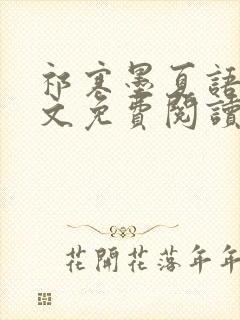 祁寒墨夏語
文免費閱讀
花開花落年年